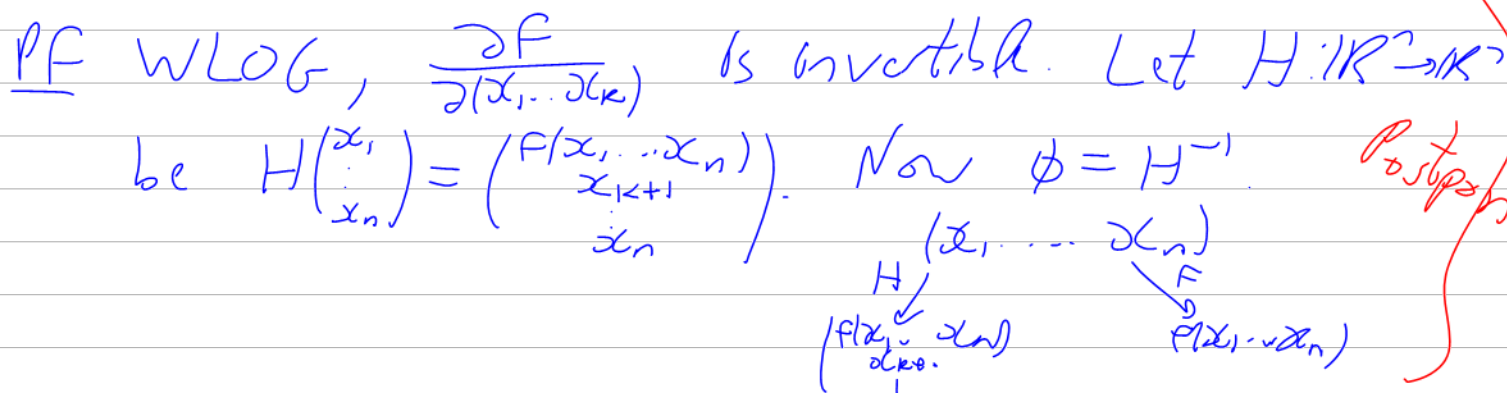 Pf WLOG, ∂F/∂(x₁...xₖ) is invertible. Let H:ℝⁿ→ℝⁿ
be H(x₁ ⋮ xₙ) = (F(x₁...xₙ) xₖ₊₁ ⋮ xₙ). Now φ = H⁻¹.
(x₁ .... xₙ)
H F
(F(x₁.. xₙ) F(x₁...xₙ)